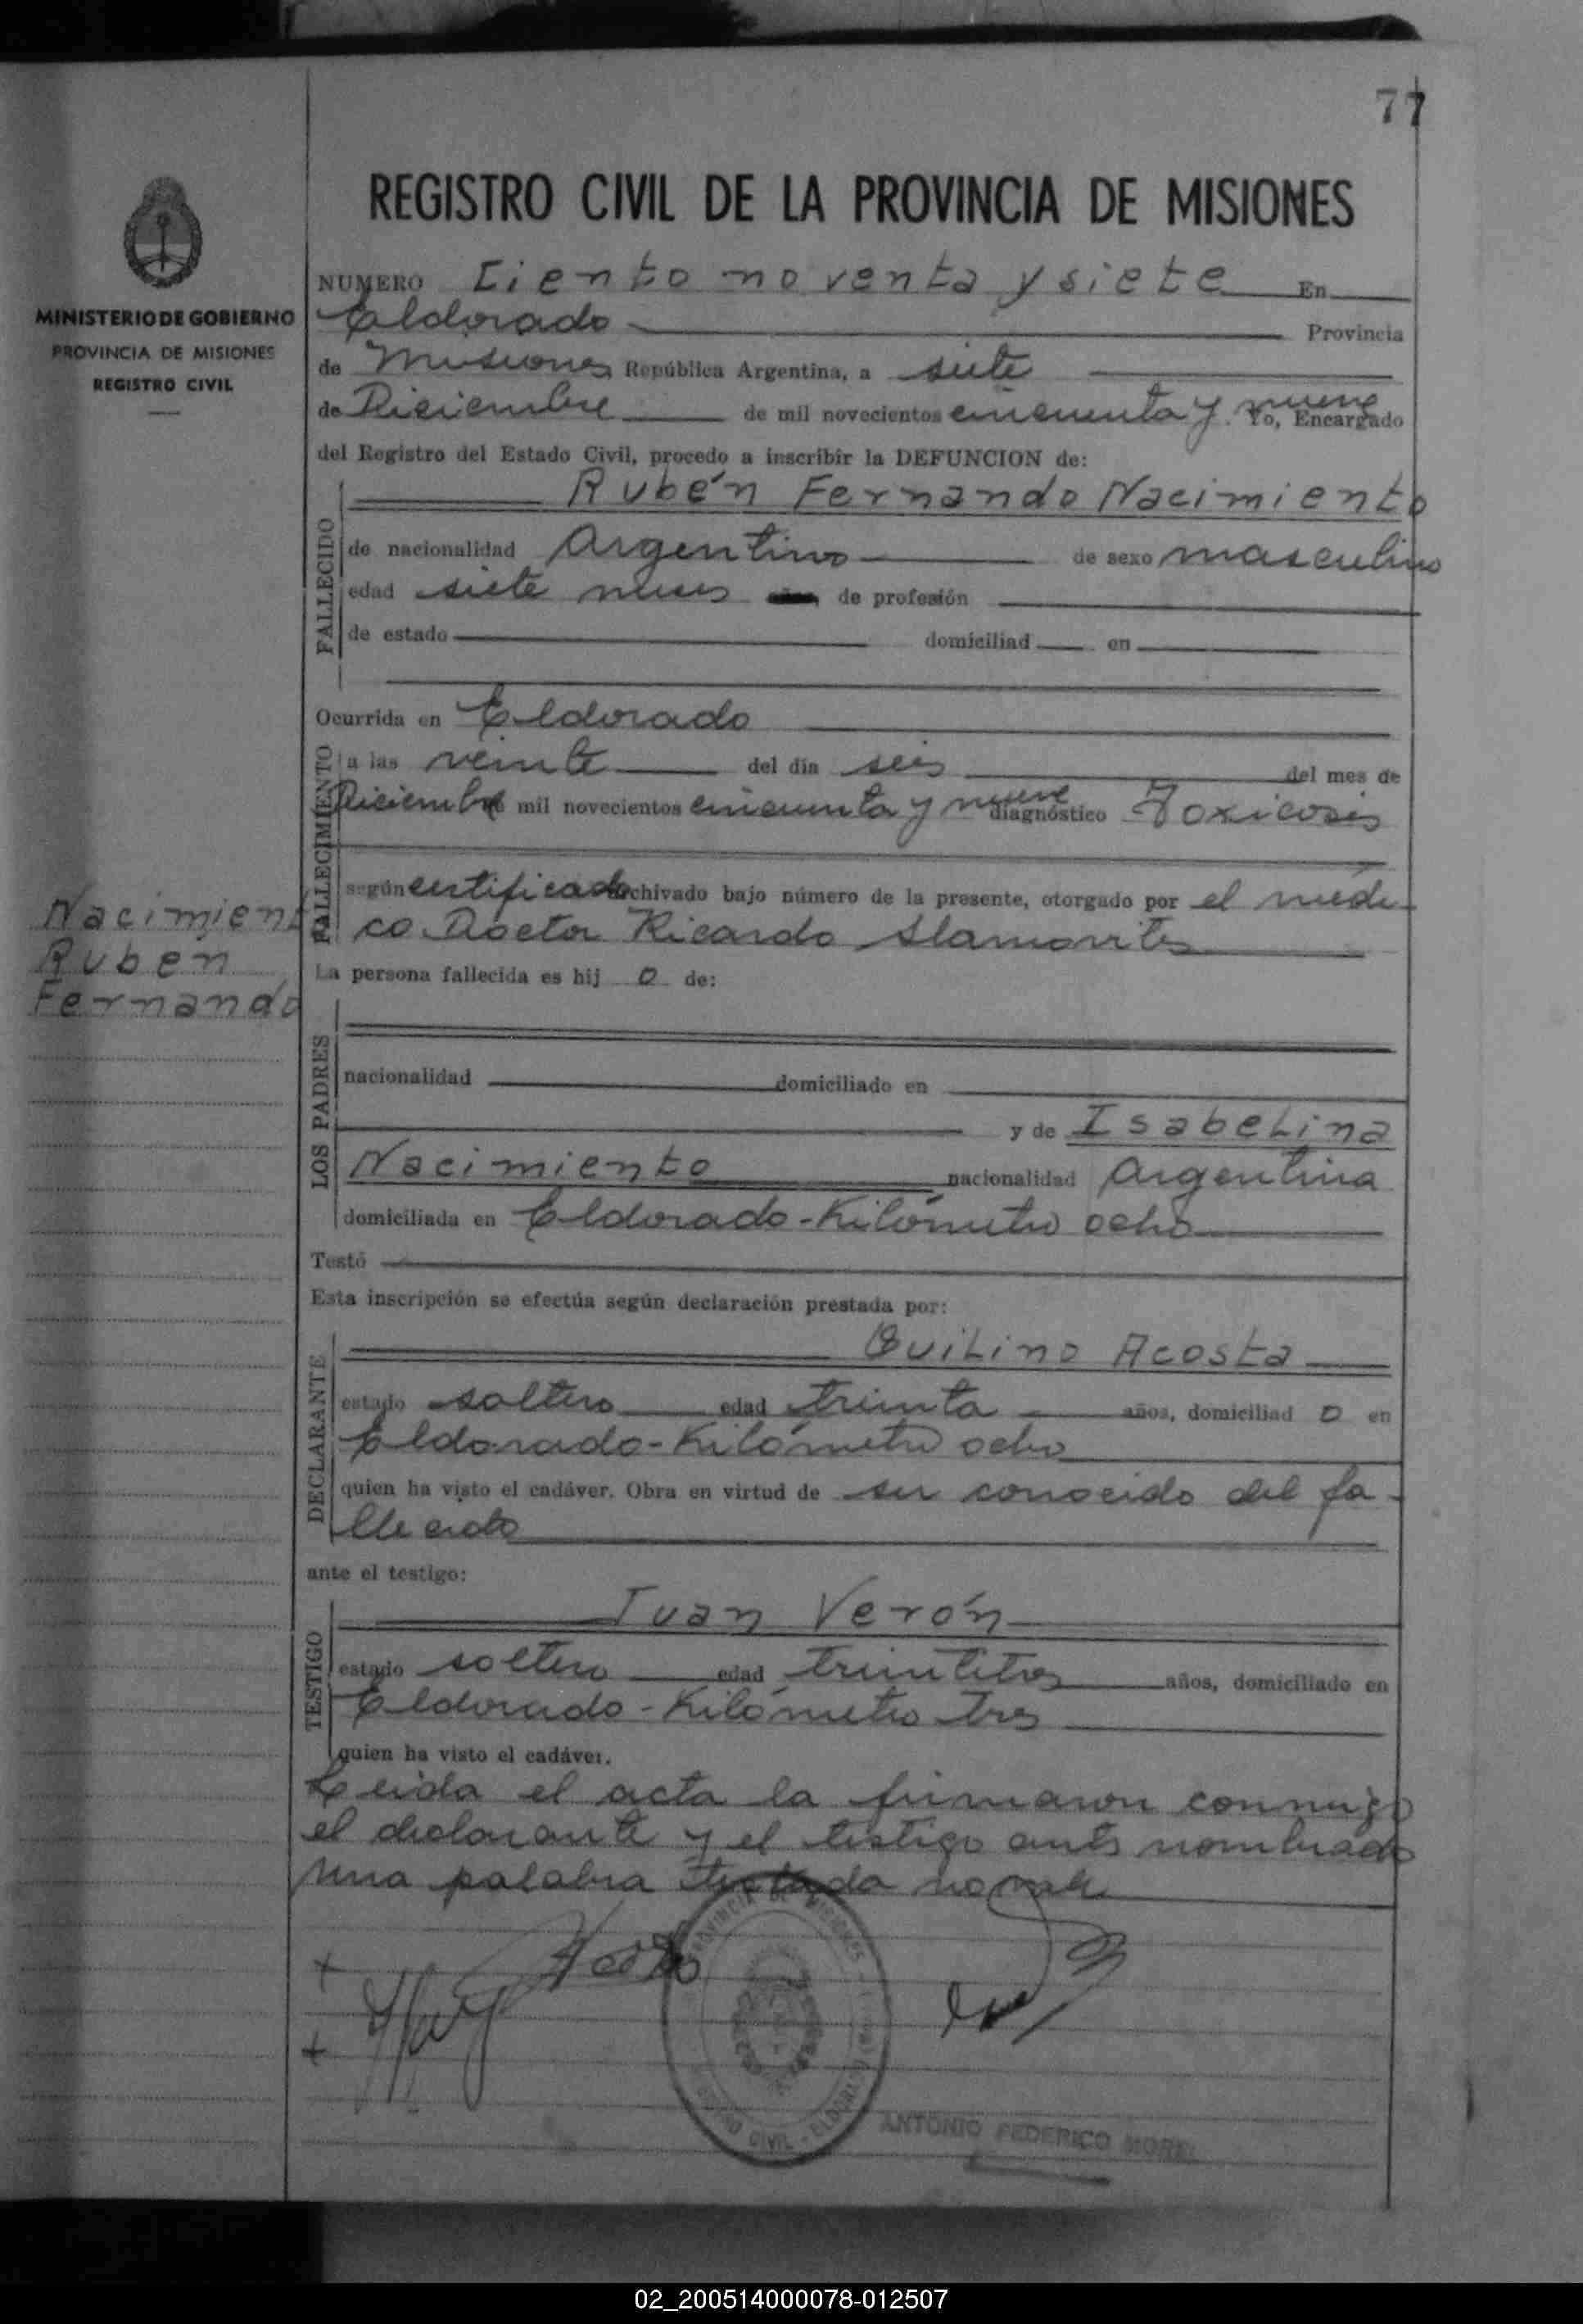 77
REGISTRO CIVIL DE LA PROVINCIA DE MISIONES
MINISTERIO DE GOBIERNO
PROVINCIA DE MISIONES
REGISTRO CIVIL
NUMERO Ciento noventa y siete En
Eldorado Provincia
de Misiones República Argentina, a siete
de Diciembre de mil novecientos cincuenta y nueve Yo, Encargado
del Registro del Estado Civil, procedo a inscribir la DEFUNCION de:
FALLECIDO
Rubén Fernando Nacimiento
de nacionalidad Argentino de sexo masculino
edad siete meses de profesión
de estado domiciliad en
Ocurrida en Eldorado
FALLECIMIENTO
a las veinte del día seis del mes de
Diciembre mil novecientos cincuenta y nueve diagnóstico Toxicosis
según certificado archivado bajo número de la presente, otorgado por el médi
co Doctor Ricardo
Nacimient
Ruben
Fernando
La persona fallecida es hij o de:
LOS PADRES
nacionalidad domiciliado en
y de Isabelina
Nacimiento nacionalidad Argentina
domiciliada en Eldorado-Kilómetro ocho
Testó
Esta inscripción se efectúa según declaración prestada por:
DECLARANTE
Quilino Acosta
estado soltero edad treinta años, domiciliad o en
Eldorado-Kilómetro ocho
quien ha visto el cadáver. Obra en virtud de ser conocido del fa-
llecido
ante el testigo:
TESTIGO
Juan Verón
estado soltero edad treintitres años, domiciliado en
Eldorado-Kilómetro tres
quien ha visto el cadáver.
Leida el acta la firmaron conmigo
el declarante y el testigo antes nombrado
una palabra testada no vale
PROVINCIA DE MISIONES
CIVIL - ELDORADO
ANTONIO FEDERICO MOREL
02_200514000078-012507